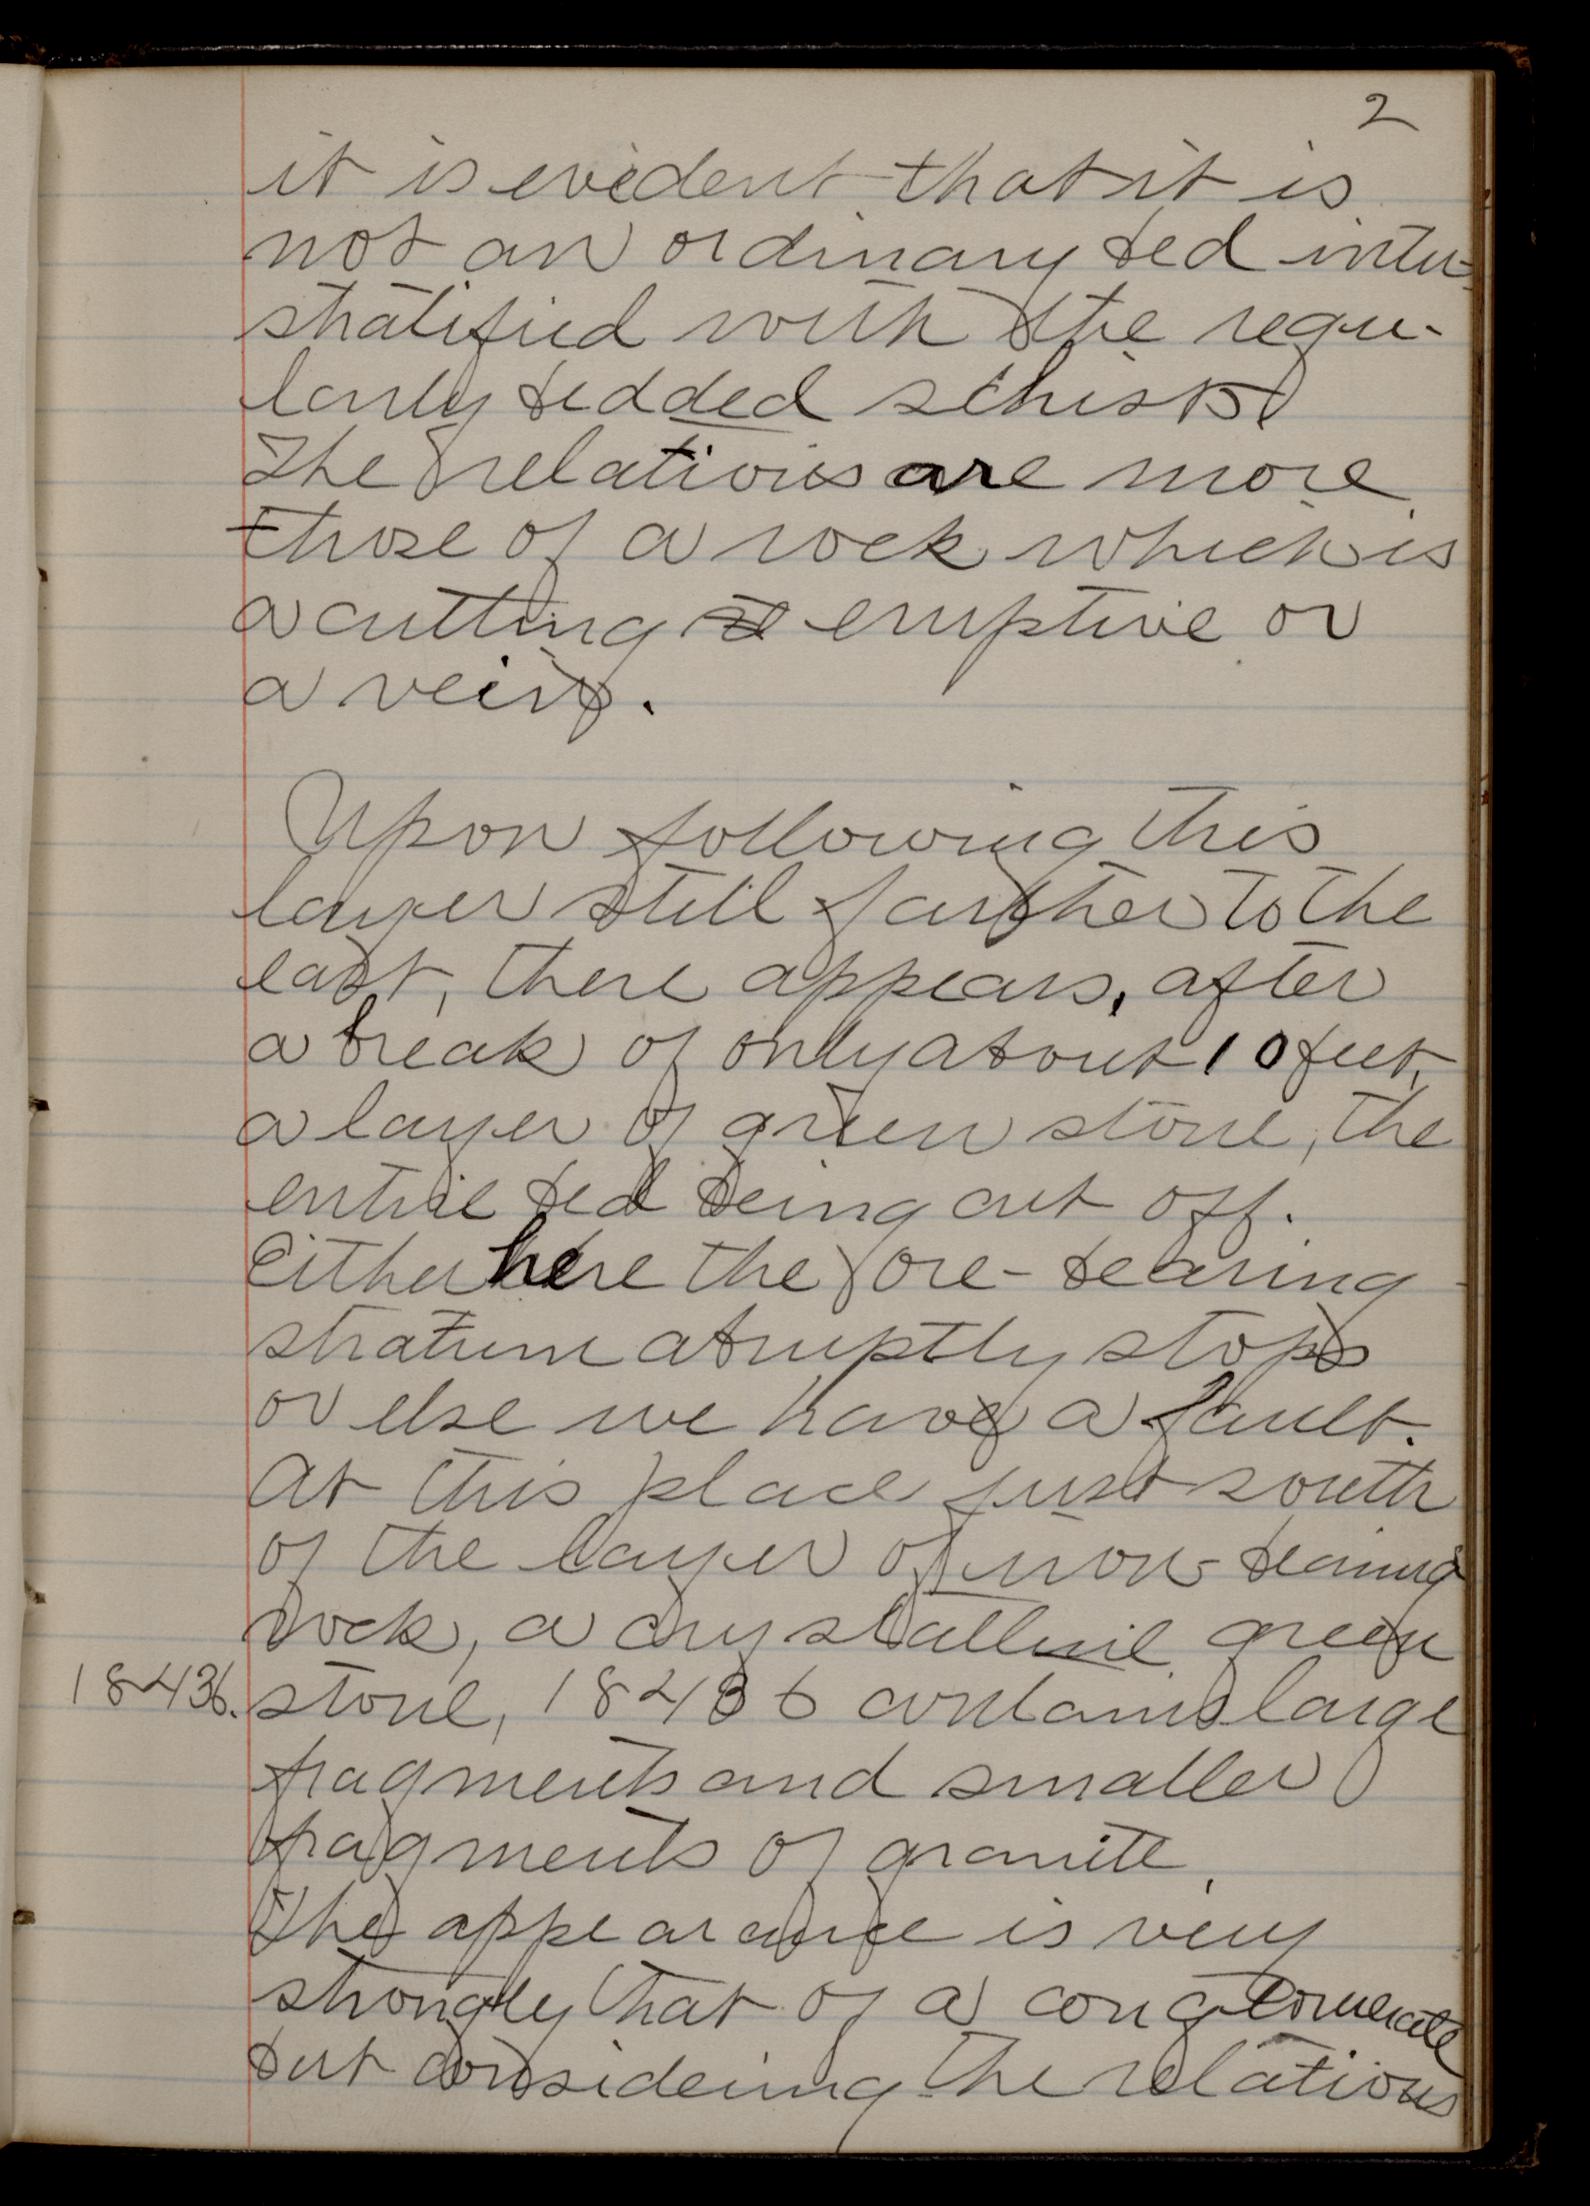 2
it is evident that it is
not an ordinary bed inter-
stratified with the regu-
larly bedded schists
The relations are more
those of a rock which is
a cutting eruptive or
a vein.
Upon following this
layer still farther to the
east, there appears, after
a break of only about 10 feet,
a layer of green stone, the
entire bed being cut off.
Either here the ore-bearing
stratum abruptly stops
or else we have a fault.
At this place just south
of the layer of iron-bearing
rock, a crystalline green
18436. stone, 18436 contains large
fragments and smaller
fragments of granite.
The appearance is very
strongly that of a conglomerate
but considering the relations